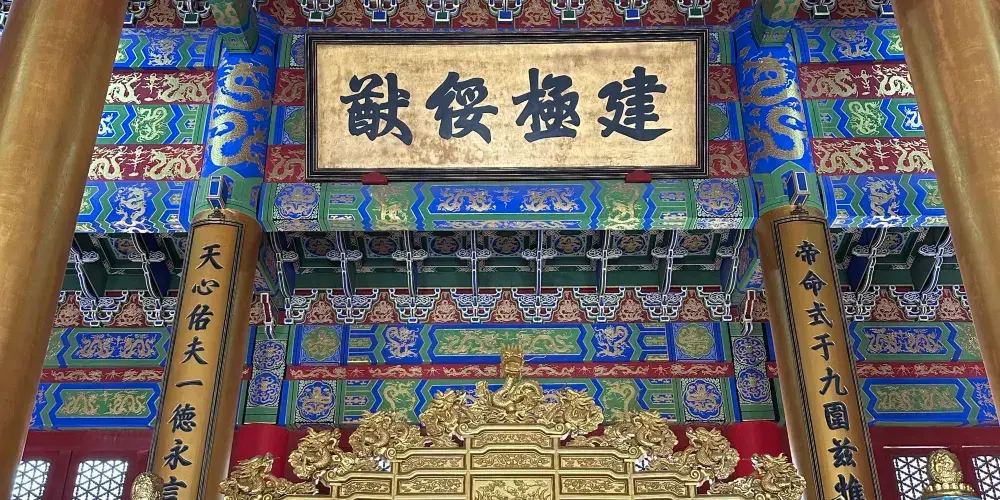 建極綏猷
帝命式于九圍茲惟
天心佑夫一德永言